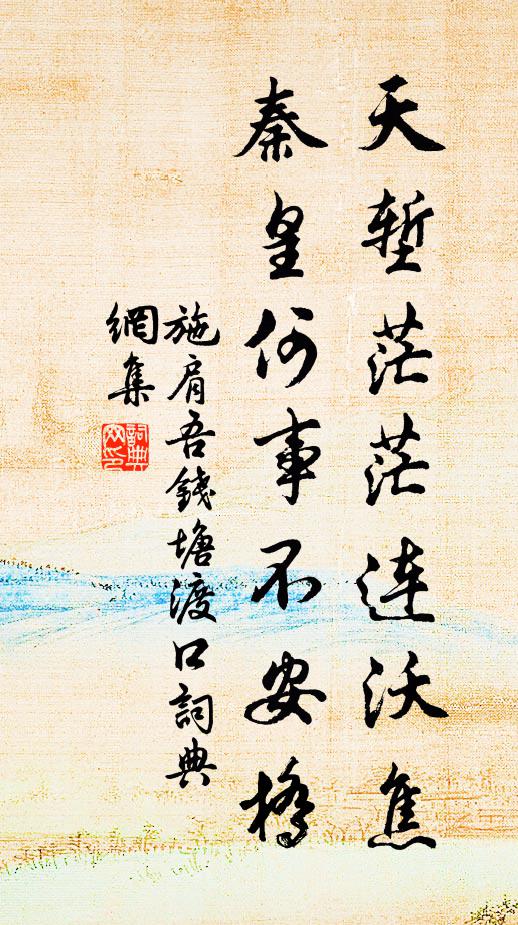 天堑茫茫連沃焦
秦皇何事不安橋
施肩吾錢塘渡口詞典
網集
詞典